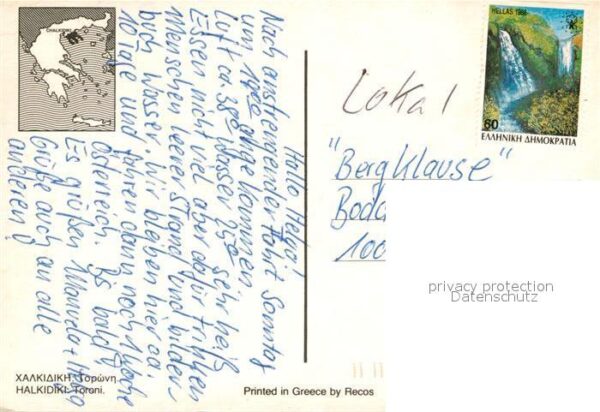 Hallo Helga!
Nach anstrengender Fahrt Sonntag
um 14°° angekommen. sehr heiß
Luft ca. 38° Wasser 25°
Essen nicht viel aber dafür trinken
Menschen leerer Strand und bilder-
buch Wasser. Wir bleiben hier ca.
10 Tage und fahren dann noch 1 Woche
Österreich. Bis bald
Es grüßen Manuela +
Grüße auch an alle
anderen!
CHALKIDIKI
ΧΑΛΚΙΔΙΚΗ. Τορώνη.
HALKIDIKI. Toroni.
Printed in Greece by Recos
HELLAS 1988
60
ΕΛΛΗΝΙΚΗ ΔΗΜΟΚΡΑΤΙΑ
Lokal
"Bergklause"
100
privacy protection
Datenschutz